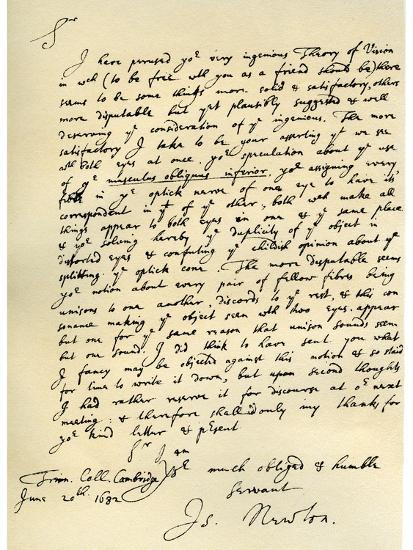 Sr
I have perused yor very ingenious Theory of Vision
in wch (to be free wth you as a friend should be) there
seems to be some things more solid & satisfactory, others
more disputable but yet plausibly suggested & well
deserving ye consideration of ye ingenious. The more
satisfactory I take to be your asserting yt we see
wth both eyes at once, yor speculation about ye use
of ye musculus obliquus inferior, yor assigning every
fibre in ye optick nerve of one eye to have its
correspondent in yt of ye other, both wch make all
things appear to both eyes in one & ye same place
& yor solving hereby ye duplicity of ye object in
distorted eyes & confuting ye childish opinion about ye
splitting ye optick cone. The more disputable seems
yor notion about every pair of fellow fibres being
unisons to one another, discords to ye rest, & this con
sonance making ye object seen with two eyes appear
but one for ye same reason that unison sounds seem
but one sound. I did think to have sent you what
I fancy may be objected against this notion & so staid
for time to write it down, but upon second thoughts
I had rather reserve it for discourse at or next
meeting: & therefore shall add only my thanks for
yor kind letter & present
Sr I am
Yor much obliged & humble
Trin. Coll. Cambridge
Servant
June 20th. 1682
Is. Newton.